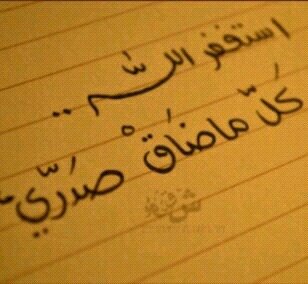 استغفر الله ..
كلّ ما ضاق صدري